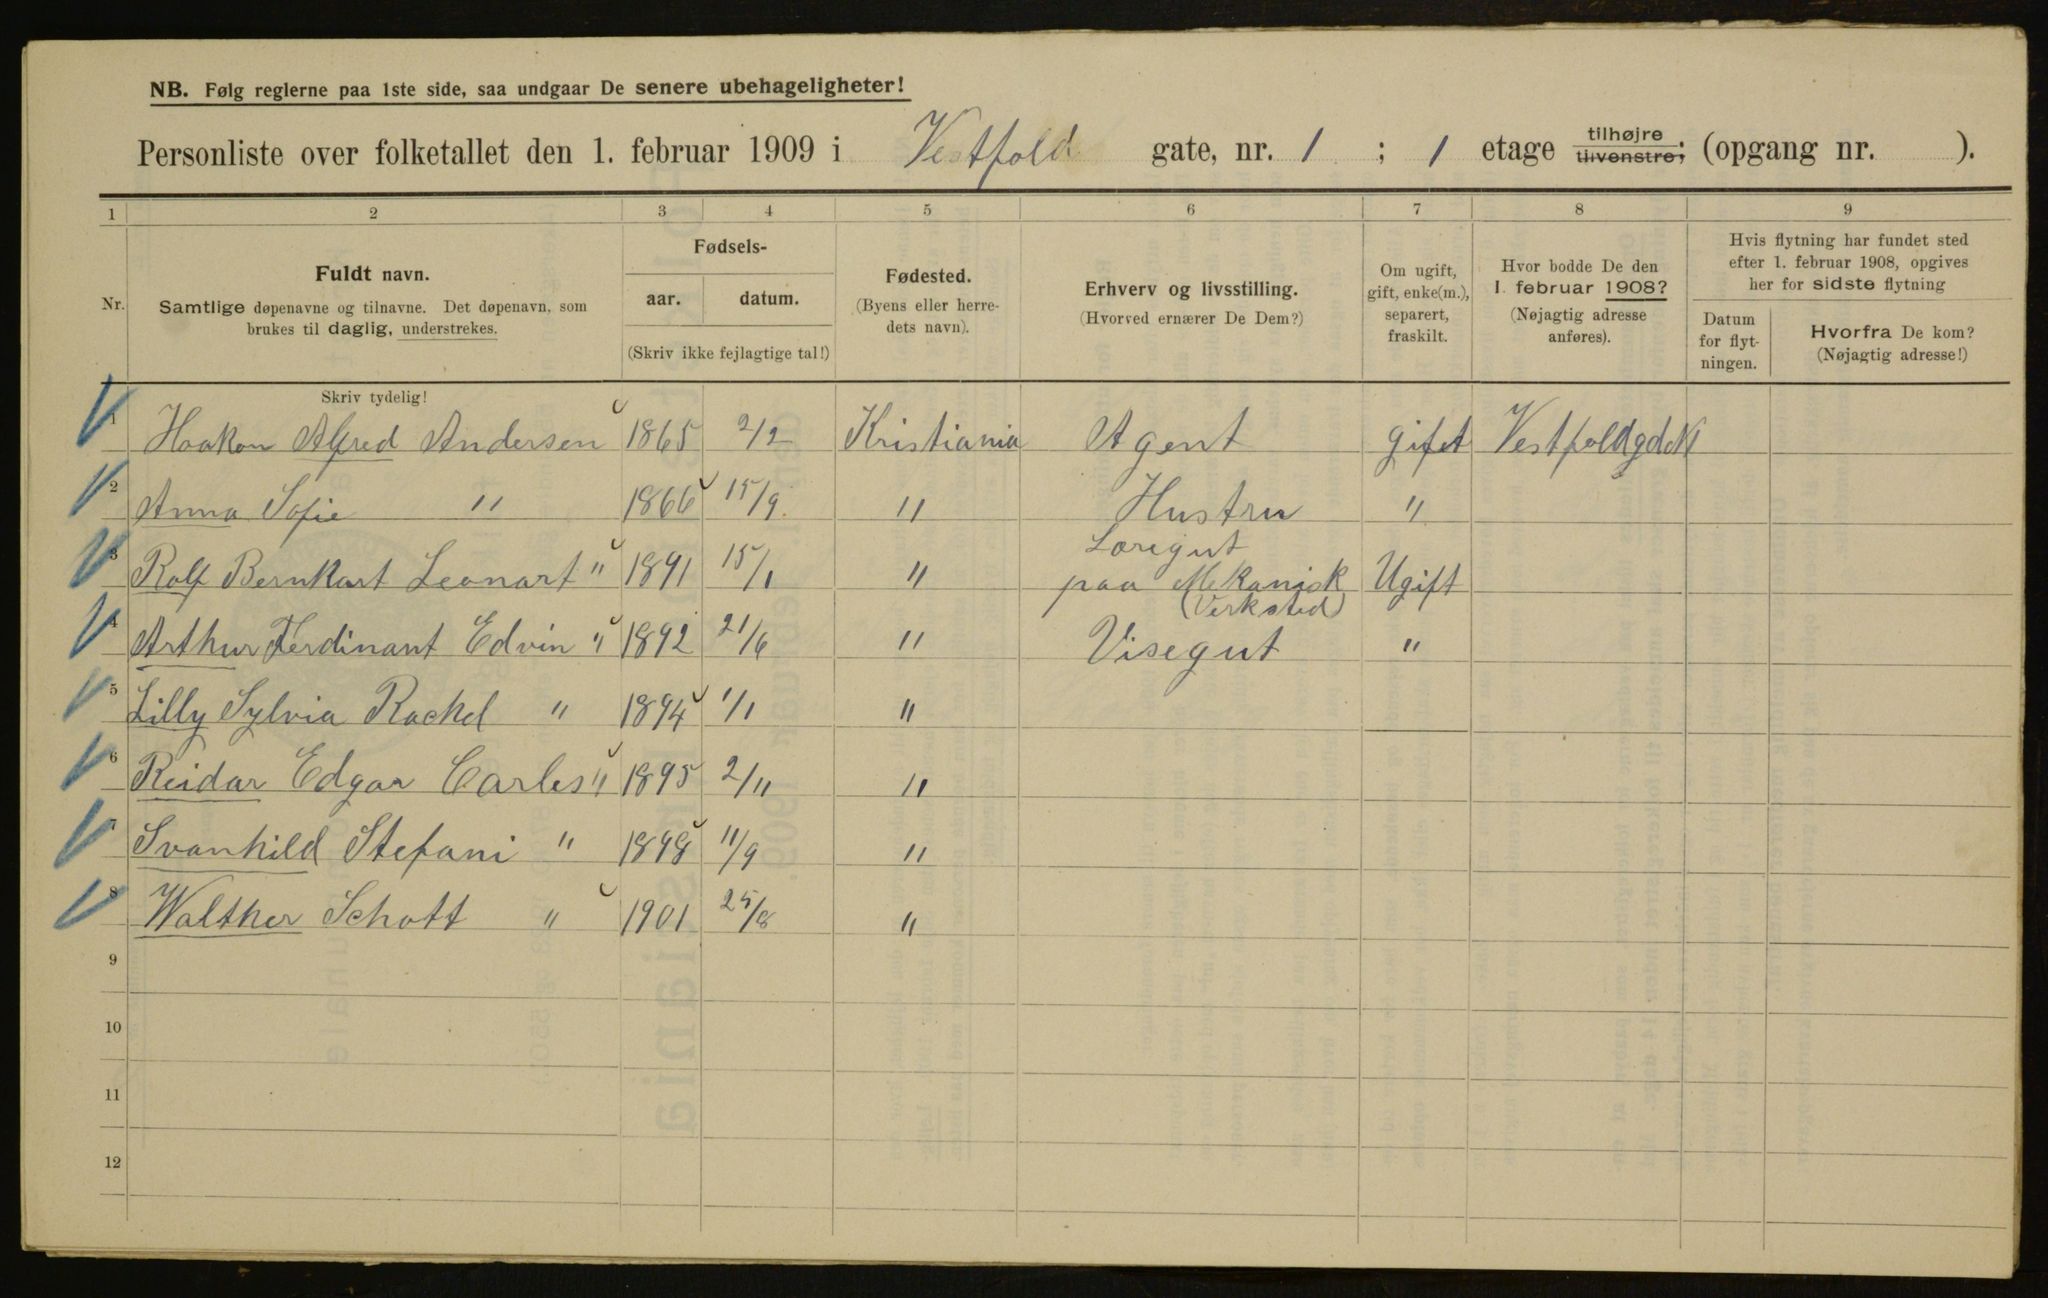 NB. Følg reglerne paa 1ste side, saa undgaar De senere ubehageligheter!
Personliste over folketallet den 1. februar 1909 i Vestfold gate, nr. 1 ; 1 etage tilhøjre tilvenstre; (opgang nr. ).
1 2 3 4 5 6 7 8 9
Nr.
Fuldt navn.
Samtlige døpenavne og tilnavne. Det døpenavn, som
brukes til daglig, understrekes.
Fødsels-
aar. datum.
(Skriv ikke fejlagtige tal!)
Fødested.
(Byens eller herre-
dets navn).
Erhverv og livsstilling.
(Hvorved ernærer De Dem?)
Om ugift,
gift, enke(m.),
separert,
fraskilt.
Hvor bodde De den
1. februar 1908?
(Nøjagtig adresse
anføres).
Hvis flytning har fundet sted
efter 1. februar 1908, opgives
her for sidste flytning
Datum
for flyt-
ningen.
Hvorfra De kom?
(Nøjagtig adresse!)
Skriv tydelig!
1 Haakon Alfred Andersen 1865 2/2 Kristiania Agent gift Vestfoldgd N1
2 Anna Sofie " 1866 15/9 " Hustru "
3 Rolf Bernhart Leonart " 1891 15/1 " Læregut
paa Mekanisk Ugift
(Verksted)
4 Arthur Ferdinant Edvin " 1892 21/6 " Visegut "
5 Lilly Sylvia Rachel " 1894 1/1 "
6 Reidar Edgar Carles " 1895 2/11 "
7 Svanhild Stefani " 1898 11/9 "
8 Walther Schott " 1901 25/8 "
9
10
11
12